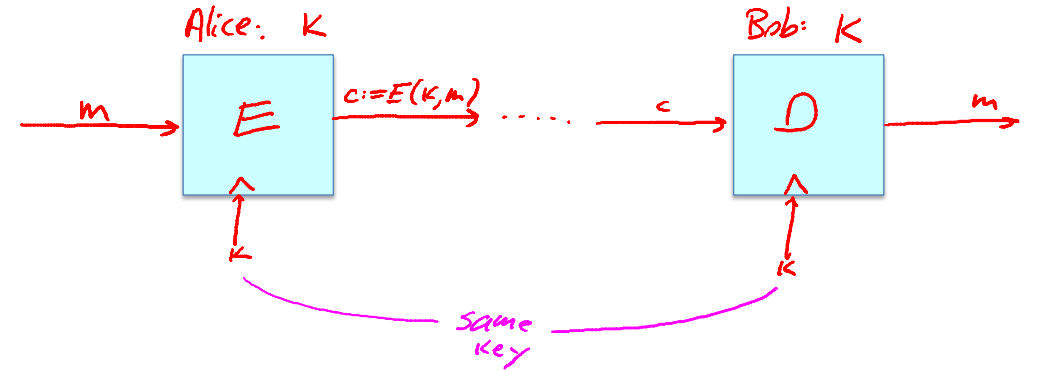 Alice: K
Bob: K
m
E
c:=E(K,m)
.....
c
D
m
K
K
same
key